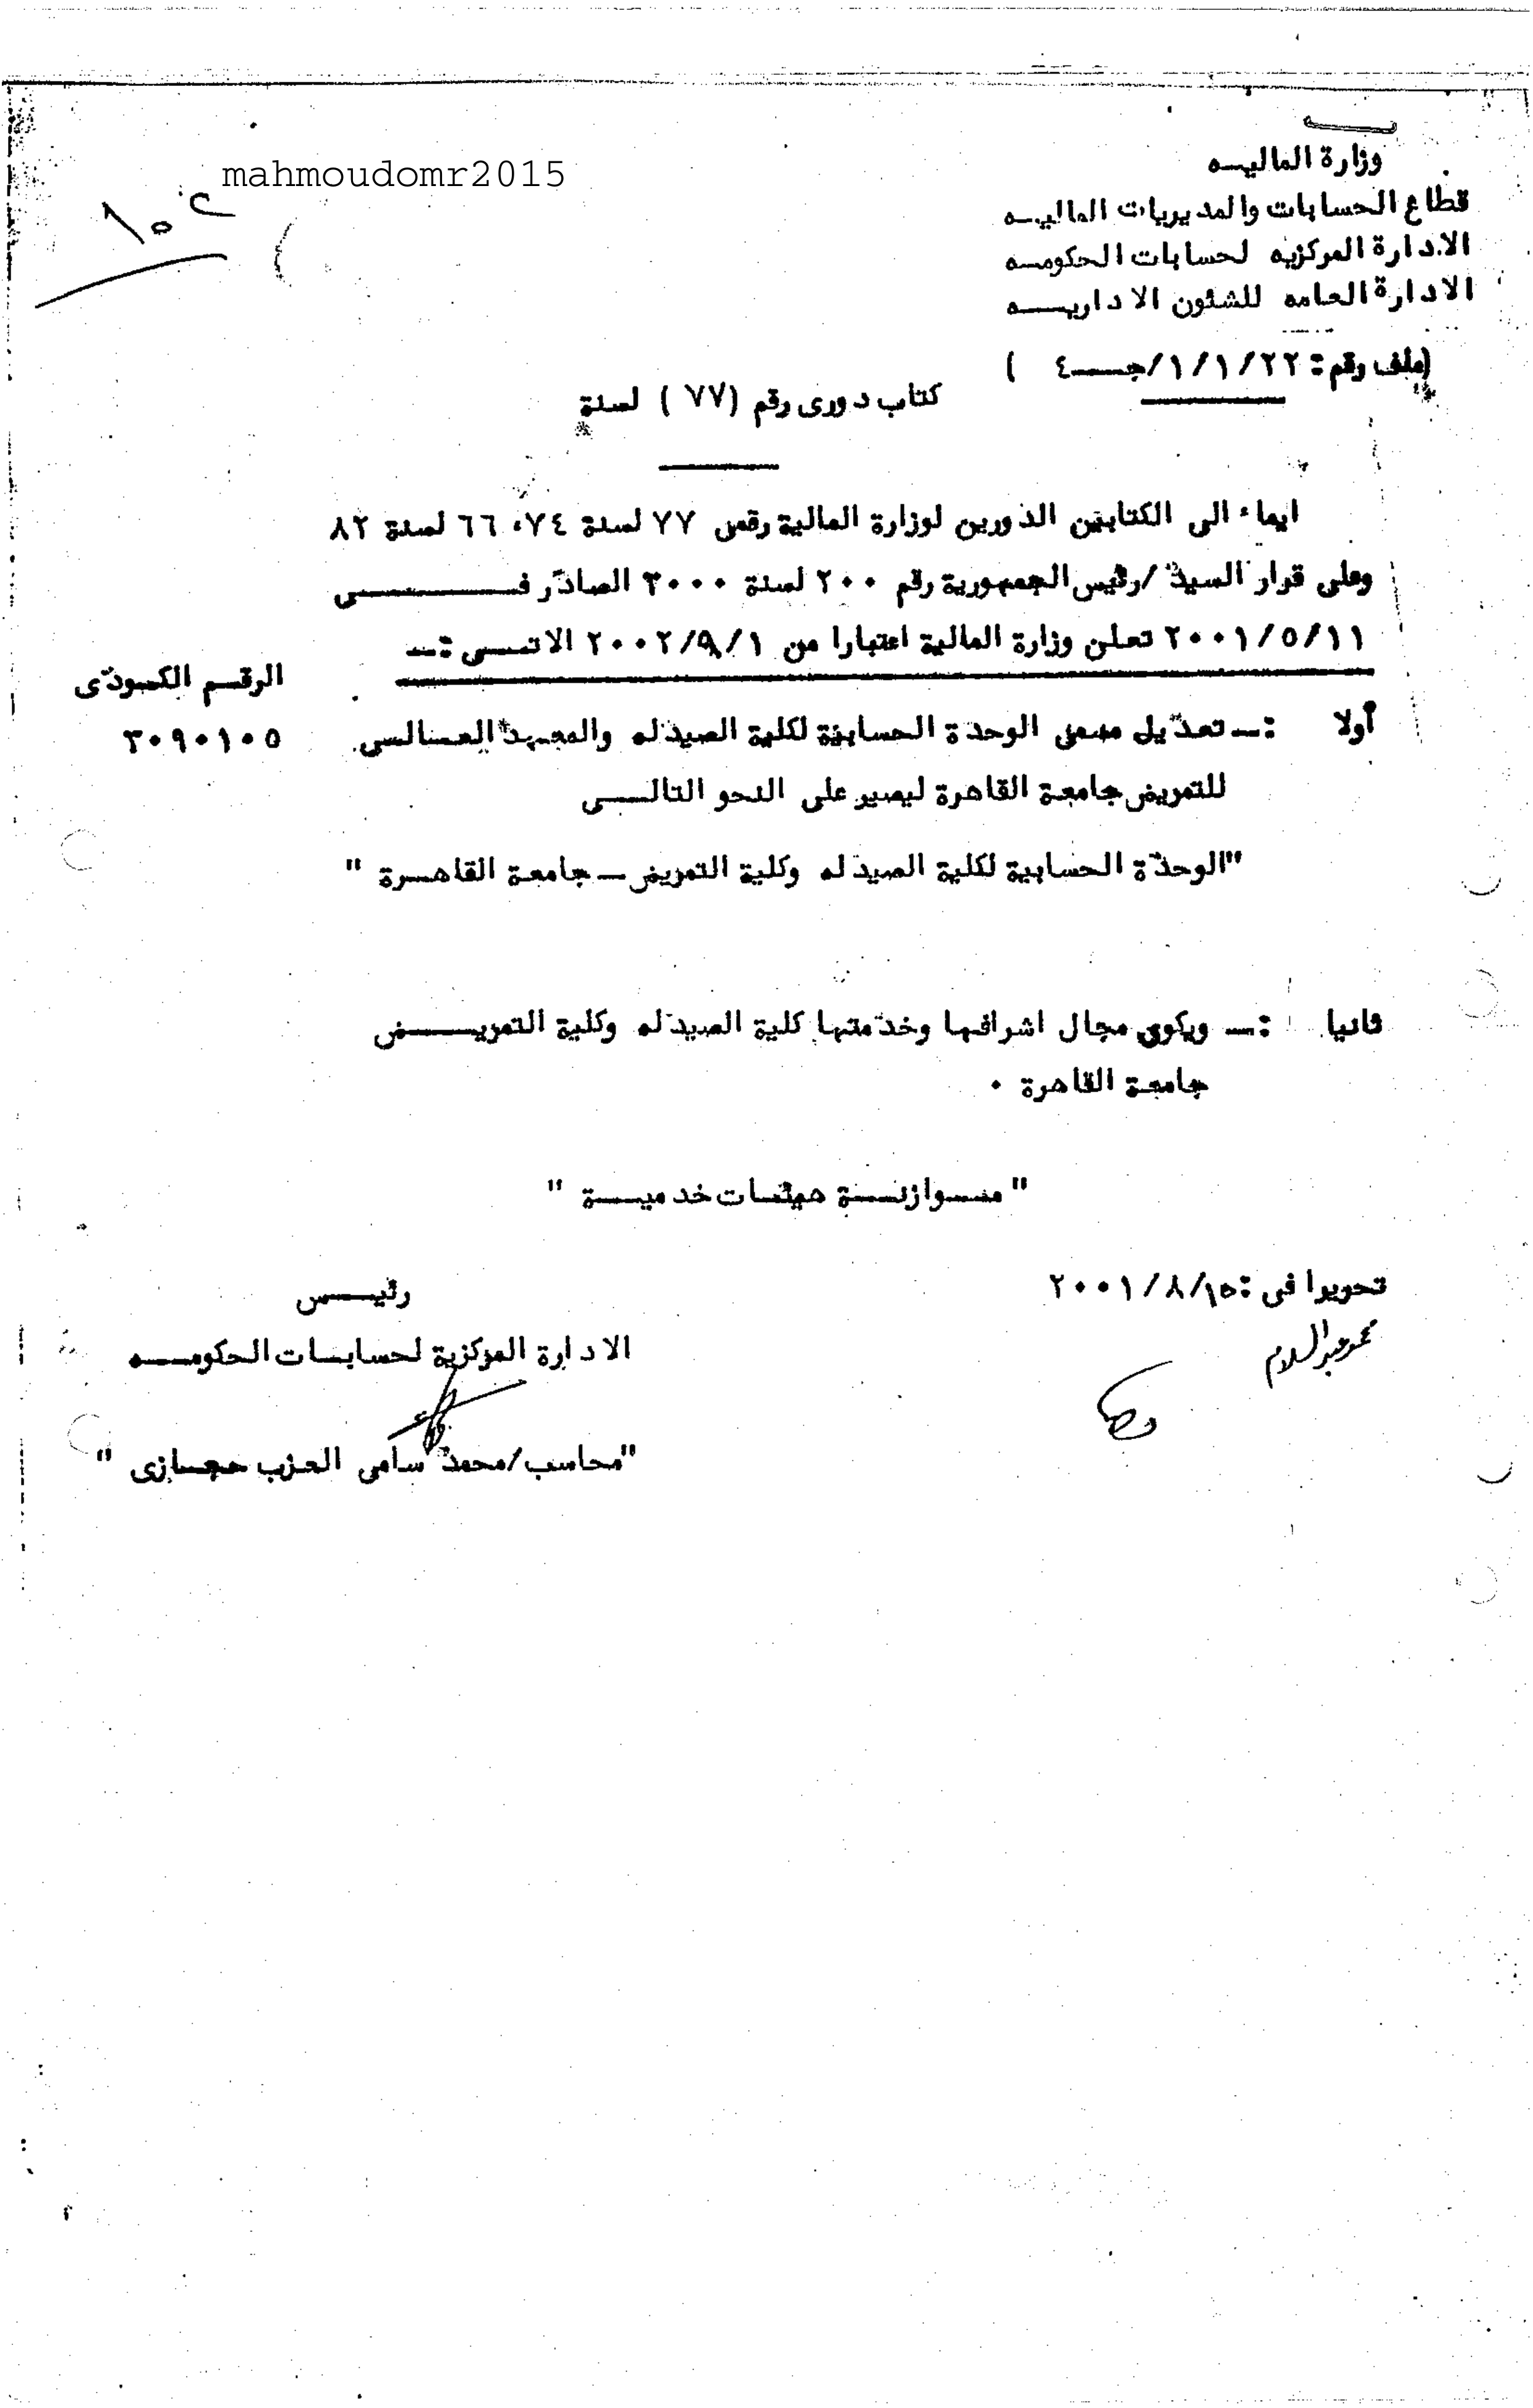 mahmoudomr2015
وزارة الماليـه
قطاع الحسابات والمديريات الماليـه
الادارة المركزيه لحسابات الحكومـه
الادارة العامه للشئون الاداريـــه
(ملف رقم : ٢٢/١/١/جـــ٤ )
كتاب دورى رقم (٧٧ ) لسنة
ايماء الى الكتابين الدورين لوزارة المالية رقمى ٧٧ لسنة ٧٤، ٦٦ لسنة ٨٢
وعلى قرار السيد /رئيس الجمهورية رقم ٢٠٠ لسنة ٢٠٠٠ الصادر فـــــــى
٢٠٠١/٥/١١ تعلن وزارة المالية اعتبارا من ٢٠٠٢/٩/١ الاتـــى :ــ
الرقـم الكـودى
أولا :ــ تعديل مسمى الوحدة الحسابية لكلية الصيدله والمعهد العـالـى ٣٠٩٠١٠٥
للتمريض جامعة القاهرة ليصير على النحو التالـــى
"الوحدة الحسابية لكلية الصيدله وكلية التمريض ــ جامعة القاهـرة "
ثانيا :ــ ويكون مجال اشرافها وخدمتها كلية الصيدله وكلية التمريــــض
جامعة القاهرة ٠
" مــوازنــة هيئـات خدميــة "
تحويرا فى : ٢٠٠١/٨/١٥
رئيــس
محمود عبد السلام
الادارة المركزية لحسابـات الحكومــه
"محاسب/محمد سامى العزب حجـازى "